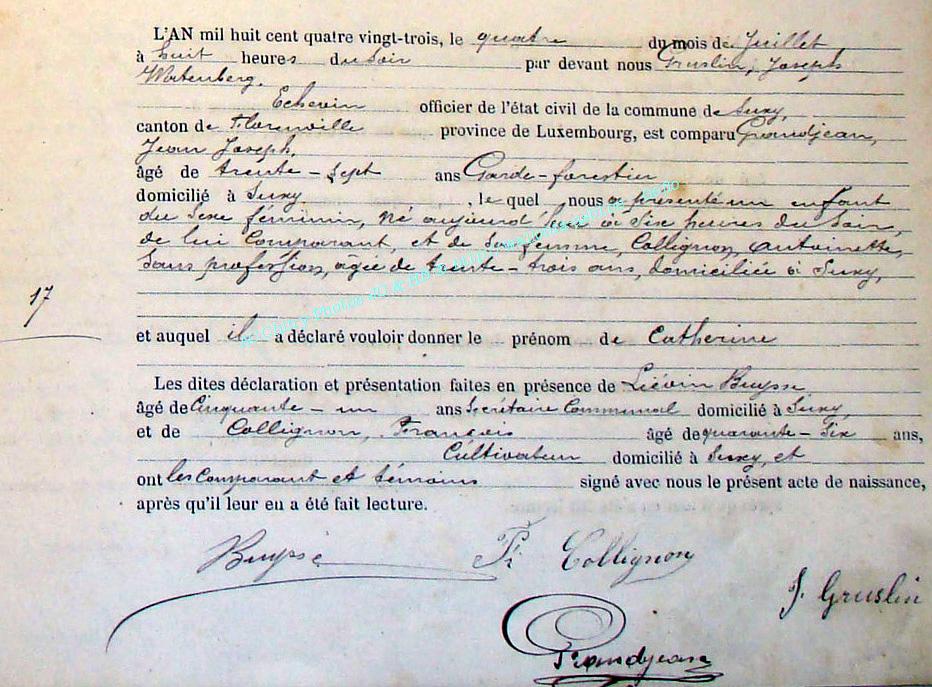 L'AN mil huit cent quatre vingt-trois, le quatre du mois de Juillet
à huit heures du soir par devant nous Gruslin, Joseph
Watenberg,
Echevin officier de l'état civil de la commune de Suxy,
canton de Florenville province de Luxembourg, est comparu Grandjean,
Jean Joseph,
âgé de trente-sept ans Garde-forestier
domicilié à Suxy, le quel nous a présenté un enfant
du sexe féminin, né aujourd'hui à six heures du soir,
de lui Comparant, et de sa femme, Collignon, Antoinette,
sans profession, âgée de trente-trois ans, domiciliée à Suxy,
17
et auquel il a déclaré vouloir donner le prénom de Catherine
Les dites déclaration et présentation faites en présence de Liévin Buysse
âgé de Cinquante-un ans Secrétaire Communal domicilié à Suxy,
et de Collignon, François âgé de quarante-six ans,
Cultivateur domicilié à Suxy, et
ont les Comparant et témoins signé avec nous le présent acte de naissance,
après qu'il leur en a été fait lecture.
Buysse Fr Collignon
J. Gruslin
Grandjean